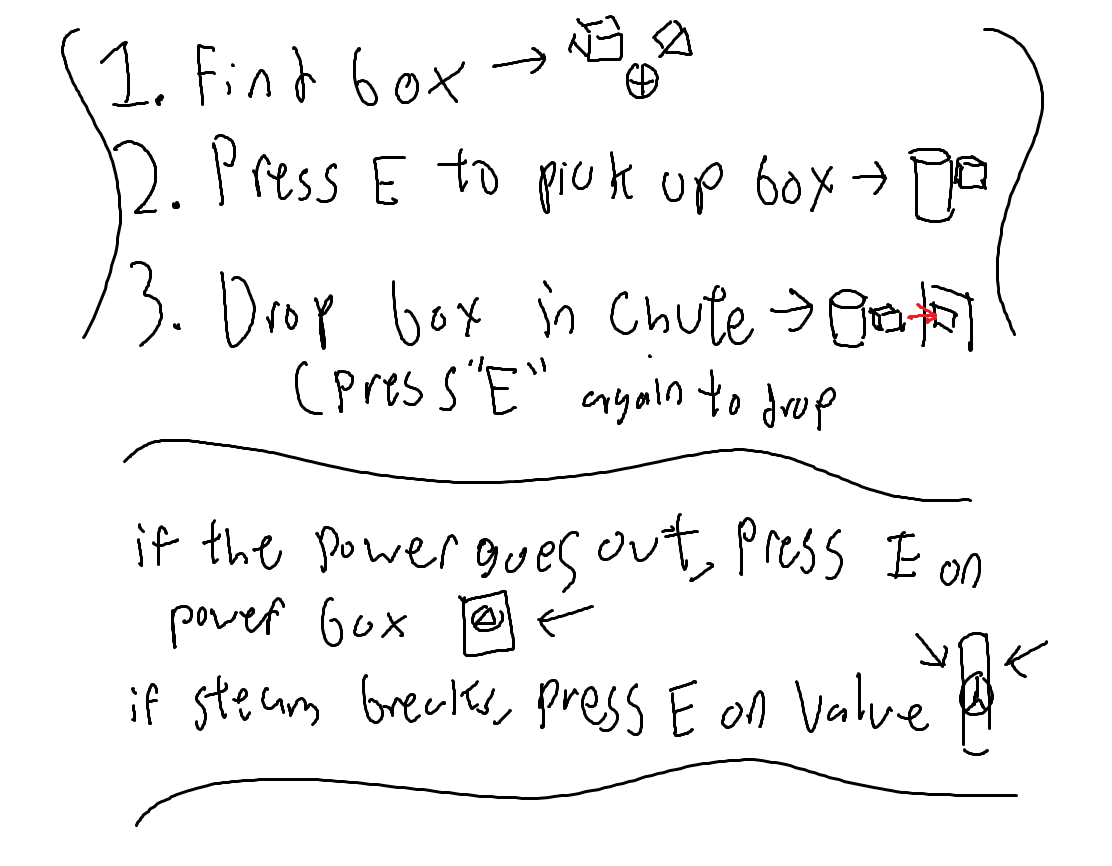 1. Find box →
2. Press E to pick up box →
3. Drop box in Chute →
(press "E" again to drop
if the power goes out, press E on
power box ←
if steam breaks, press E on Value